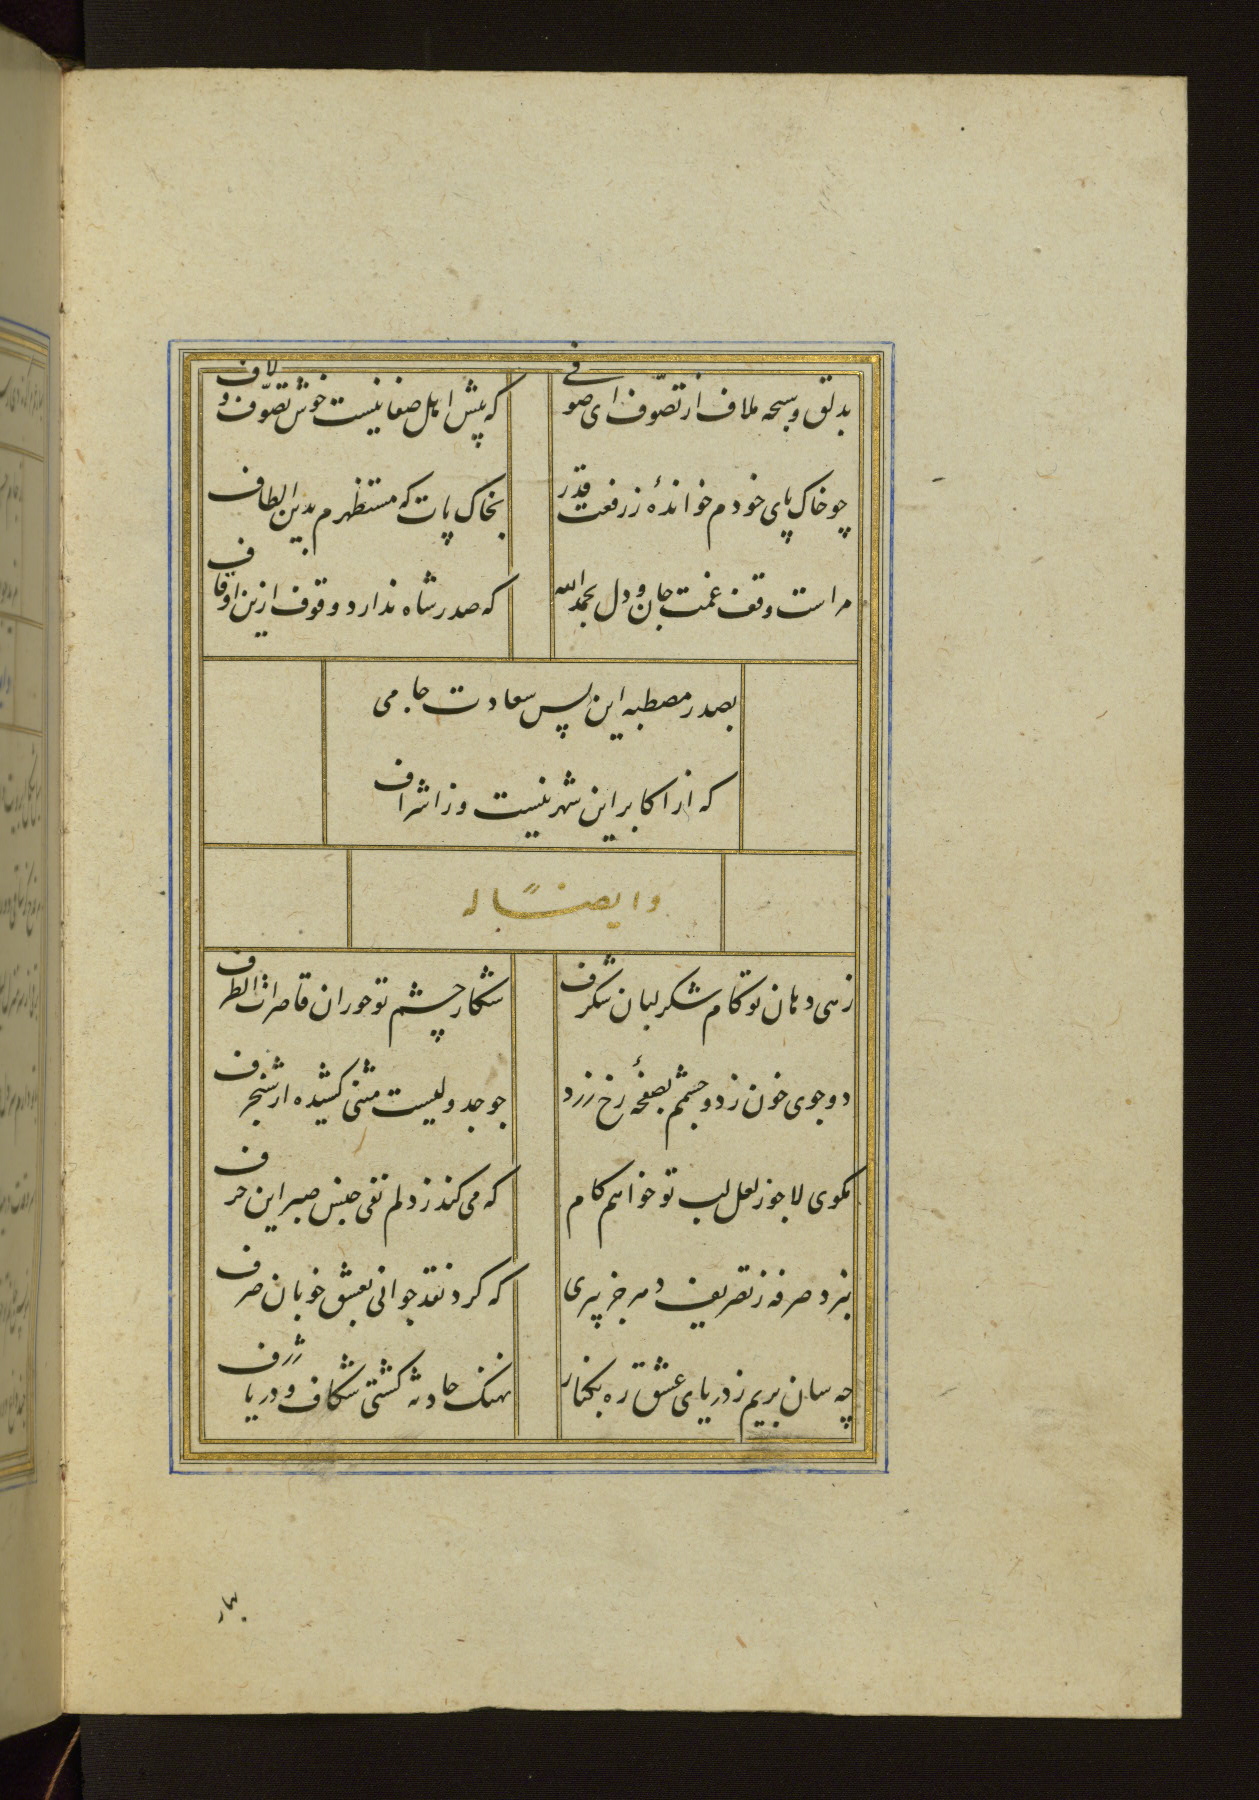 بدلق و سبحه ملاف از تصوّف ای صوفی
که پیش اهل صفا نیست خوش تصوّف و لاف
چو خاک پای خودم خوانده‌ٔ ز رفعت قدر
بخاک پات که مستظهرم بدین الطاف
مراست وقف غمت جان و دل بحمد الله
که صدر شاه ندارد وقوف ازین اوقاف
بصدر مصطبه این پس سعادت جامی
که از اکابر این شهر نیست وز اشراف
وایضاً له
زهی دهان تو کام شکر لبان شکرف
شکار چشم تو حوران قاصرات الطرف
دو جوی خون ز دو چشمم بصفحهٔ رخ زرد
چو جدولیست مثنی کشیده از شنجرف
مکوی لا چو ز لعل لب تو خواهم کام
که می کند ز دلم نفی جنس صبر این حرف
نبرد صرفه ز تصریف دهر جز پیری
که کرد نقد جوانی بعشق خوبان صرف
چه سان بریم ز دریای عشق ره بکنار
نهنک حادثه کشتی شکاف و دریا ژرف
بهار